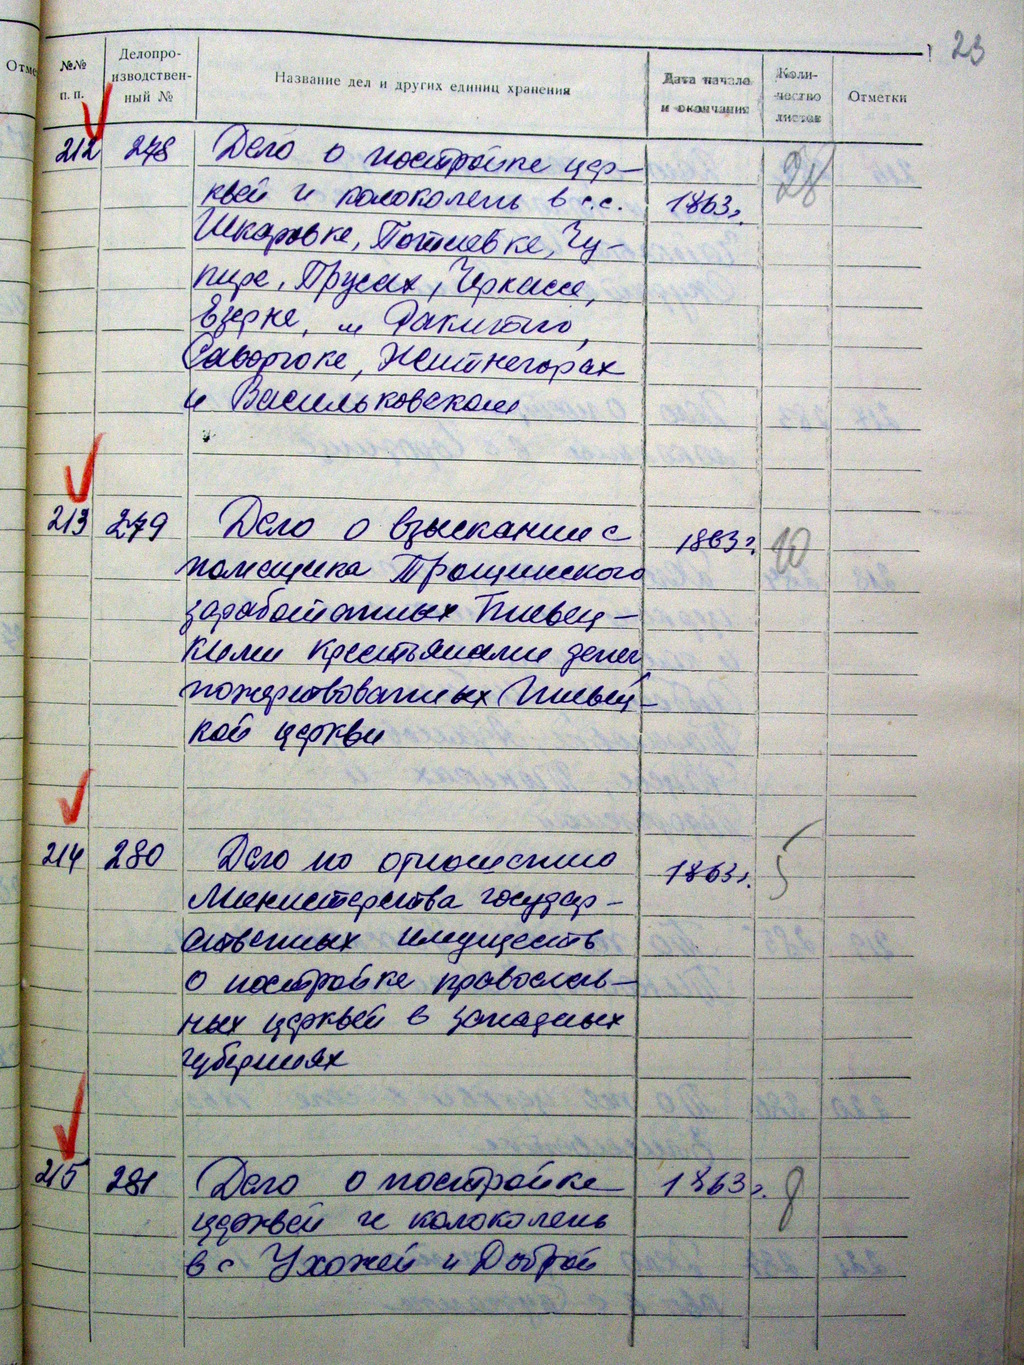 23
Отме
№№ п. п.
Делопро-
изводствен-
ный №
Название дел и других единиц хранения
Дата начала
и окончания
Коли-
чество
листов
Отметки
212 278 Дело о постройке цер-
квей и колоколень в с.с. 1863г. 28
Шкаровке, Потиевке, Чу-
пире, Трусах, Черкассе,
Езерне, м Ракитно,
Саварке, Житнегорах
и Васильковском
213 279 Дело о взыскании с 1863г. 10
помещика Трощинского
заработанных Пивец-
кими крестьянами денег
пожертвованных Пивец-
кой церкви
214 280 Дело по отношению 1863г. 5
Министерства государ-
ственных имуществ
о постройке православ-
ных церквей в западных
губерниях
215 281 Дело о постройке 1863г. 8
церквей и колоколень
в с Ухожей и Доброй